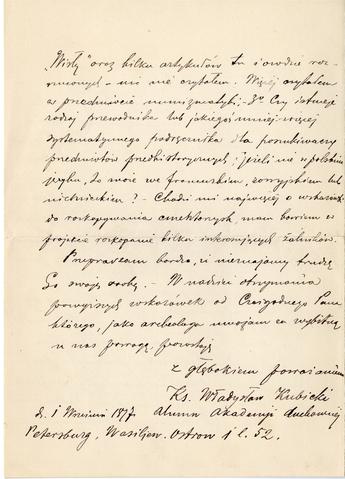 „Wisły" oraz kilku artykułów tu i owdzie roz-
rzuconych – nic nie czytałem. Więcej czytałem
w przedmiocie numizmatyki; 3° Czy istnieje
rodzaj przewodnika lub jakiegoś mniej-więcej
systematycznego podręcznika dla poszukiwaczy
przedmiotów przedhistorycznych; jeżeli nie w polskim
języku, to może we francuskim, rossyjskim lub
niemieckim? – Chodzi mi najwięcej o wskazówki
do rozkopywania cmentarzysk, mam bowiem w
projekcie rozkopanie kilku interesujących żalników.
Przepraszam bardzo, iż nieznajomy trudzę
Go swoją osobą. – W nadziei otrzymania
powyższych wskazówek od Czcigodnego Pana
którego, jako archeologa uważam za wybitną
u nas powagę, pozostaję
z głębokiem poważaniem
Ks. Władysław Kubicki
d. 1 Września 1897. Alumn Akademji duchownej
Petersburg, Wasiljew. Ostrow 1 l. 52.